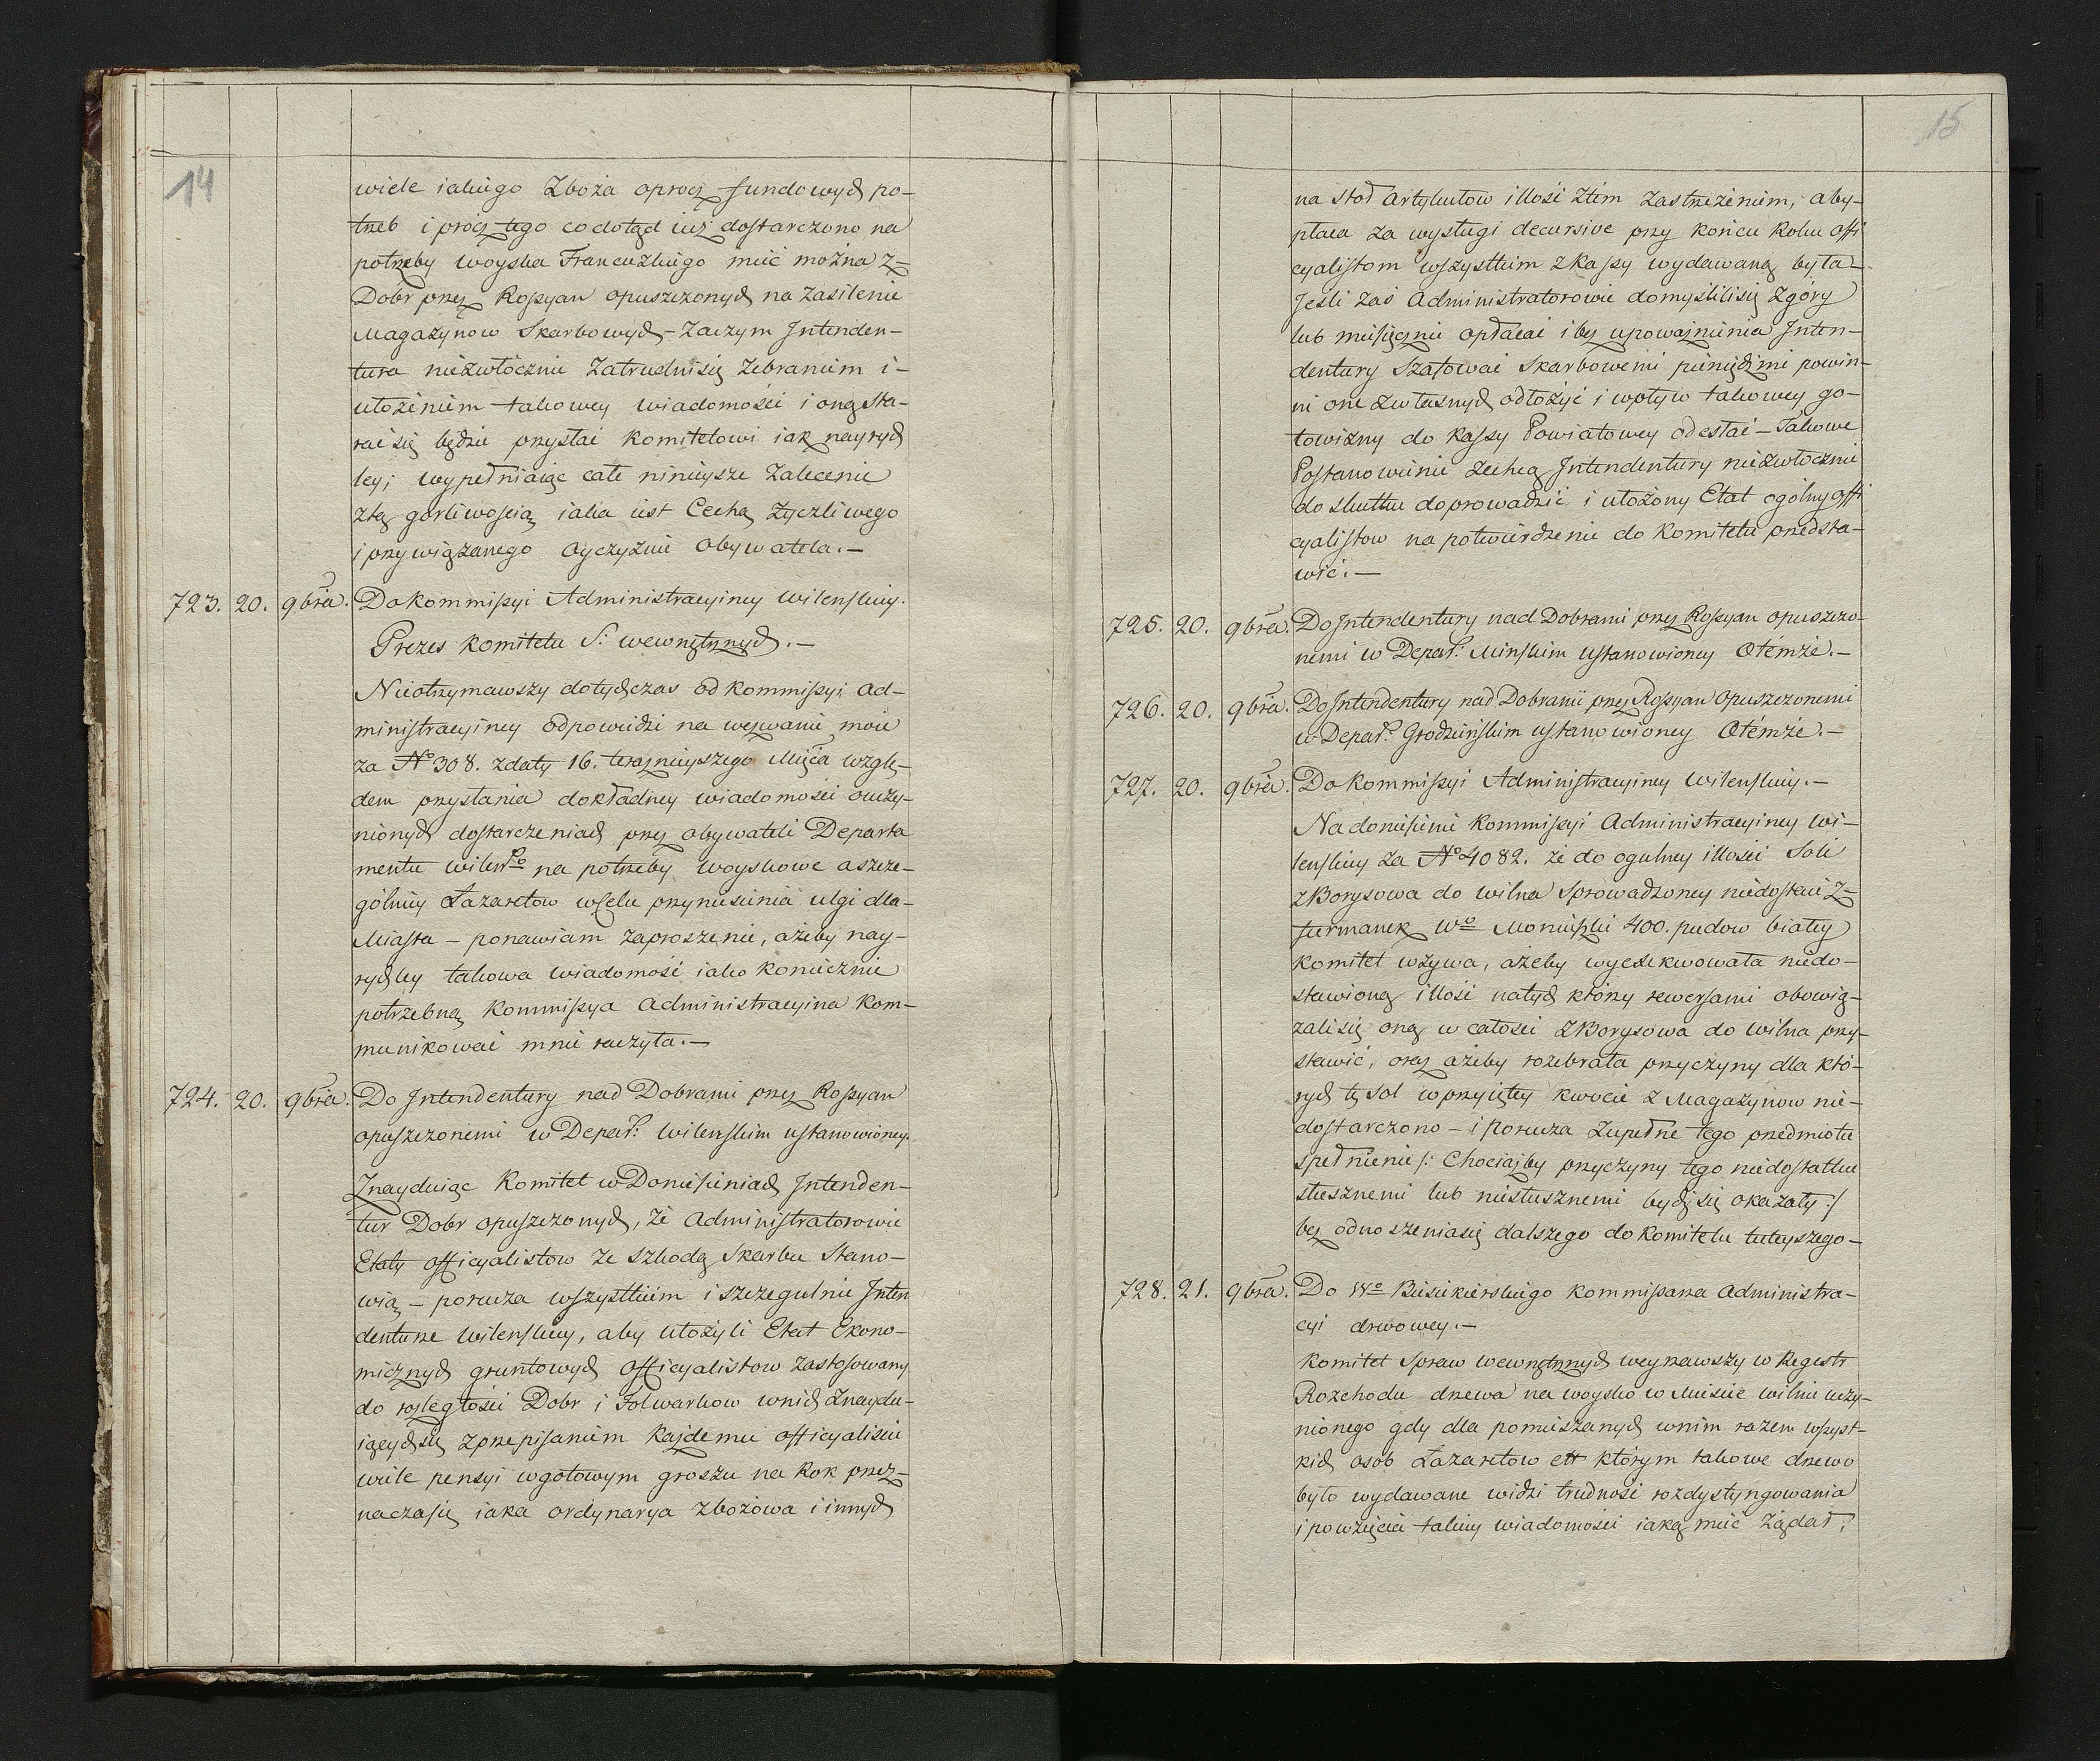 14
wiele iakiego Zboża oprocz fundowych po-
trzeb i procz tego co dotąd iuż dostarczono na
potrzeby woyska Francuzkiego mieć można z-
Dobr przez Rossyan opuszczonych na zasilenie
Magazynow Skarbowych - Zaczym Intenden-
tura niezwłocznie Zatrudni się zebraniem i-
ułożeniem takowey wiadomości i oną sta-
rać się będzie przysłać Komitetowi iak nayryech
ley; wypełniaiąc całe ninieysze Zalecenie
z tą gorliwością iaka iest Cechą życzliwego
i przywiązanego Oyczyznie Obywatela.-
723. 20. 9bra. Do Kommissyi Administracyiney Wilenskiey.
Prezes Komitetu S: wewnętrznych.-
Nieotrzymawszy dotychczas od Kommissyi Ad-
ministracyiney odpowiedzi na wezwanie moie
za No 308. z daty 16. teraznieyszego Mięca wzglę-
dem przysłania dokładney wiadomości o uczy-
nionych dostarczeniach przez obywateli Departa
mentu Wileńgo na potrzeby woyskowe a szcze-
gólniey Łazaretow w Celu przyniesienia ulgi dla-
Miasta - ponawiam zaproszenie, ażeby nay-
rychley takowa wiadomość iako koniecznie
potrzebną Kommissya Administracyina kom-
munikować mnie raczyła.-
724. 20. 9bra. Do Intendentury nad Dobrami przez Rossyan
opuszczonemi w Depart: Wilenskim ustanowioney.
Znayduiąc Komitet w Doniesieniach Intenden-
tur Dobr opuszczonych, że Administratorowie
Etaty officyalistow ze szkodą Skarbu stano-
wią - porucza wszystkim i szczegulnie Inten
denturze Wilenskiey, aby ułożyli Etat Ekono-
micznych gruntowych Officyalistow zastosowany
do rozległości Dobr i Folwarkow w nich znaydu-
iących się z przepisaniem każdemu officyaliscie
wiele pensyi w gotowym groszu na Rok prze-
nacza się iaka ordynarya zbożowa i innych
15
na stoł artykułow illość z tém zastrzeżeniem, aby-
płaca za wysługi decursive przy końcu Roku offi
cyalistom wszystkim z Kassy wydawaną była-
Jeśli zaś Administratorowie domyślili się z góry
lub miesięcznie opłacać i bez upoważnienia Inten-
dentury Szafować Skarbowemi pieniędzmi powin-
ni one z własnych odłożyć i wpływ takowey go-
towizny do Kassy Powiatowey odesłać - Takowe
Postanowienie zechcą Intendentury niezwłocznie
do skutku doprowadzić i ułożony Etat ogólny offi
cyalistow na potwierdzenie do Komitetu przedsta-
wić.-
725. 20. 9bra. Do Intendentury nad Dobrami przez Rossyan opuszczo-
nemi w Depart: Minskim ustanowioney Otémże.-
726. 20. 9bra. Do Intendentury nad Dobrami przez Rossyan Opuszczonemi
w Depart: Grodzieńskim ustanowioney Otémże.-
727. 20. 9bra. Do Kommissyi Administracyiney Wilenskiey.-
Na doniesienie Kommissyi Administracyiney Wi-
lenskiey za No 4082. że do ogulney illości Soli
z Borysowa do Wilna sprowadzoney niedostaie z-
furmanek Wo Moniuszki 400. pudow białey
Komitet wzywa, ażeby wyexekwowała niedo-
stawioną illość na tych którzy rewersami obowią-
zali się oną w całości z Borysowa do Wilna przy-
stawić, oraz ażeby rozebrała przyczyny dla któ-
rych tę sol w przyiętey kwocie z Magazynow nie-
dostarczono - i porucza zupełne tego przedmiotu
spełnienie /: Chociażby przyczyny tego niedostatku
słusznemi lub niesłusznemi bydź się okazały :/
bez odnoszenia się dalszego do Komitetu tuteyszego-
728. 21. 9bra. Do Wo Bisiekierskiego Kommissarza Administra-
cyi drzewney.-
Komitet Spraw wewnętrznych weyrzawszy w Regestr
Rozchodu drzewa na woysko w Mieście Wilnie uczy-
nionego gdy dla pomieszanych w nim razem wszyst-
kich osób Łazaretow ett którym takowe drzewo
było wydawane widzi trudność rozdystyngowania
i powzięcia takiey wiadomości iaką mieć żądał;